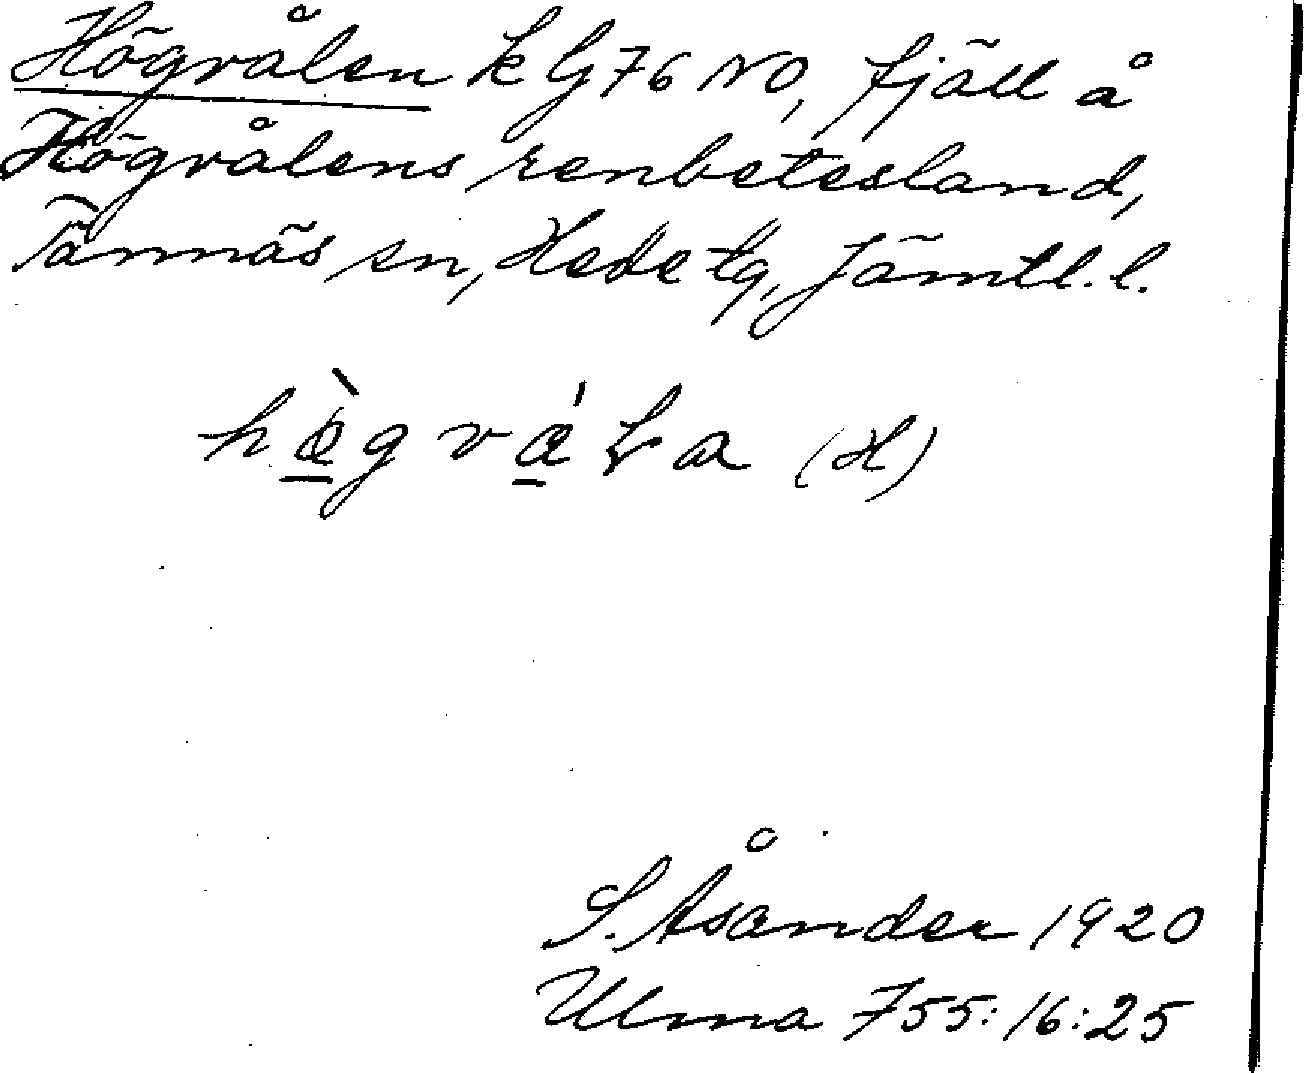 Högvålen k G 76 NO, fjäll å
Högvålens renbetesland,
Tännäs sn, Hede tg, Jämtl. l.
(H)
S. Åsander 1920
Ulma 755:16:25